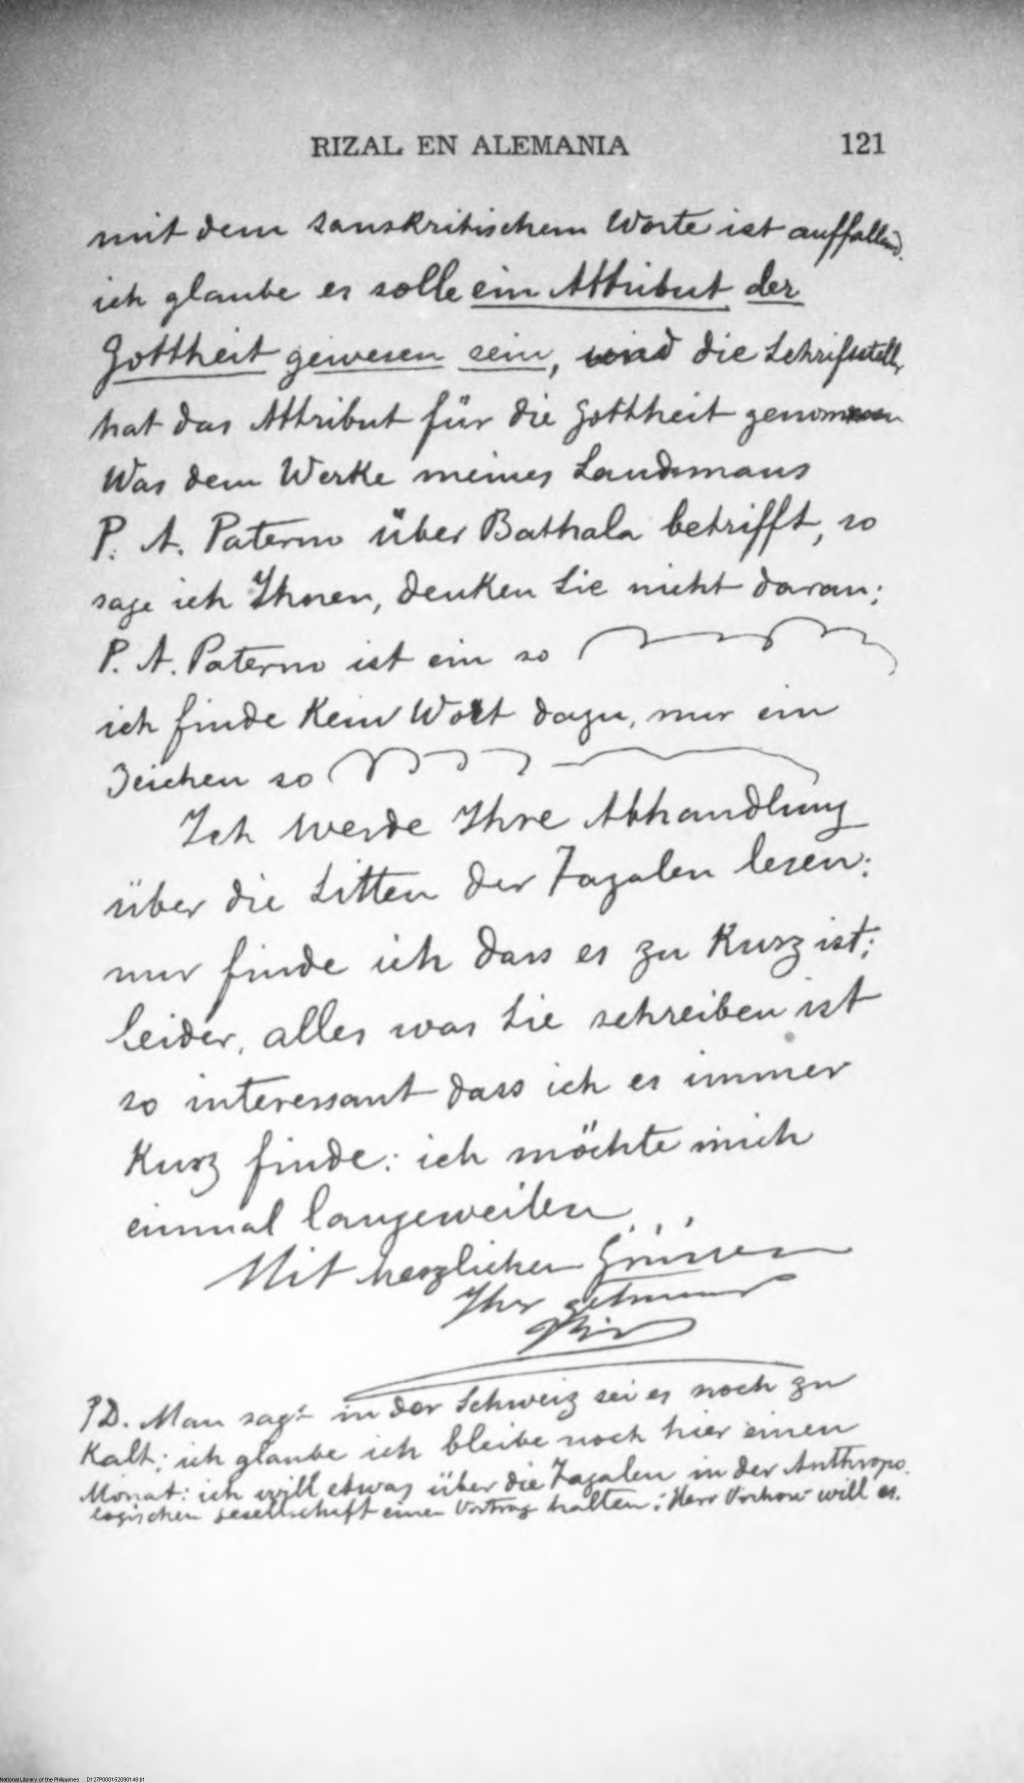 RIZAL EN ALEMANIA 121
mit dem sanskritischem Worte ist auffallend.
ich glaube es solle ein Attribut der
Gottheit gewesen sein, und die Schrifsteller
hat das Attribut für die Gottheit genommen
Was dem Werke meines Landsmans
P. A. Paterno über Bathala betrifft, so
sage ich Ihnen, denken Sie nicht daran;
P. A. Paterno ist ein so
ich finde Kein Wort dazu, nur ein
Zeichen so
Ich werde Ihre Abhandlung
über die Sitten der Tagalen lesen;
nur finde ich dass es zu Kurz ist;
leider, alles was Sie schreiben ist
so interessant dass ich es immer
Kurz finde: ich möchte mich
einmal langeweilen...
Mit herzlichen Grüssen
Ihr
PD. Man sagt in der Schweiz sei es noch zu
Kalt; ich glaube ich bleibe noch hier einen
Monat: ich will etwas über die Tagalen in der Anthropo-
logischen gesellschaft einen Vortrag halten; Herr Virchow will es.
National Library of the Philippines